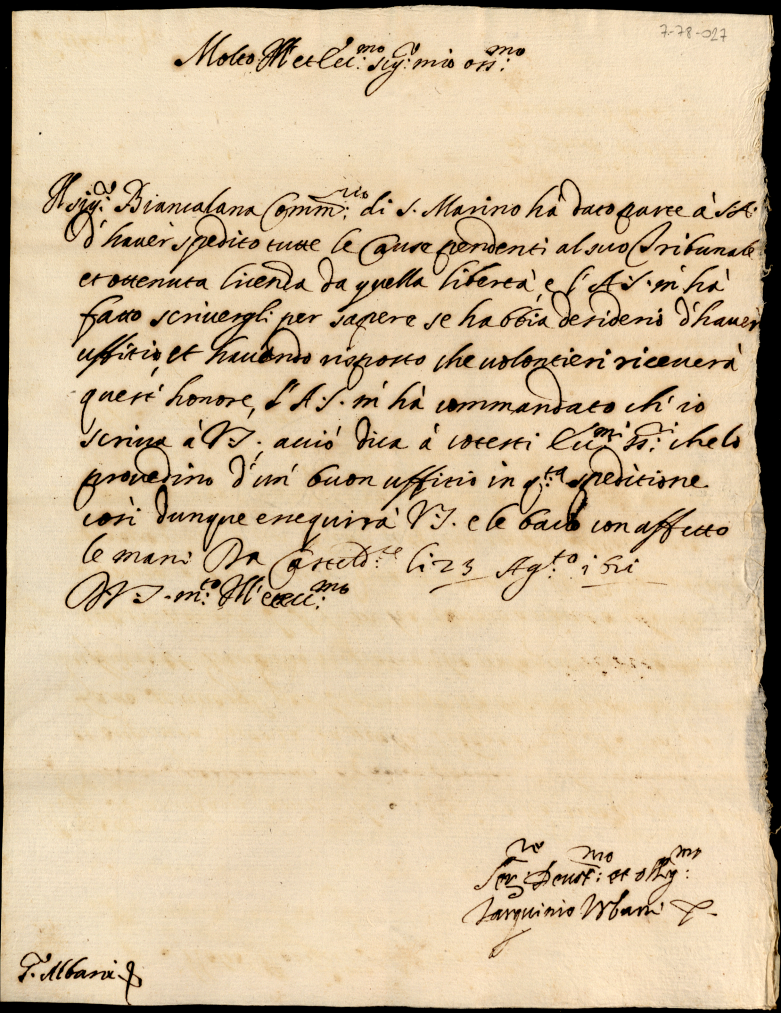 7-78-027
Molto Ill et Ecc:mo sigr: mio oss:mo
Il sigr: Biancalana Comm:rio di S. Marino hà dato parte à S.A.
d'haver spedito tutte le Cause pendenti al suo Tribunale
et ottenuta licenza da quella libertà, e l'A:S. m'hà
fatto scrivergli per sapere se habbia desiderio d'haver
uffitio, et havendo risposto che volontieri riceverà
quest'honore, l'A:S. m'hà commandato ch'io
scriva à V.S. acciò dica à cotesti Ecc:mi ss:ri che lo
provedino d'un' buon uffitio in q:ta speditione
così dunque esequirà V.S. e le bacio con affetto
le mani Da Casteld:te li 23 Ag:to 1621
D V.S. m:to Ill et ecc:mo
Ser:re Devot:mo et oblig:mo
Tarquinio Urbani
S:r Albani